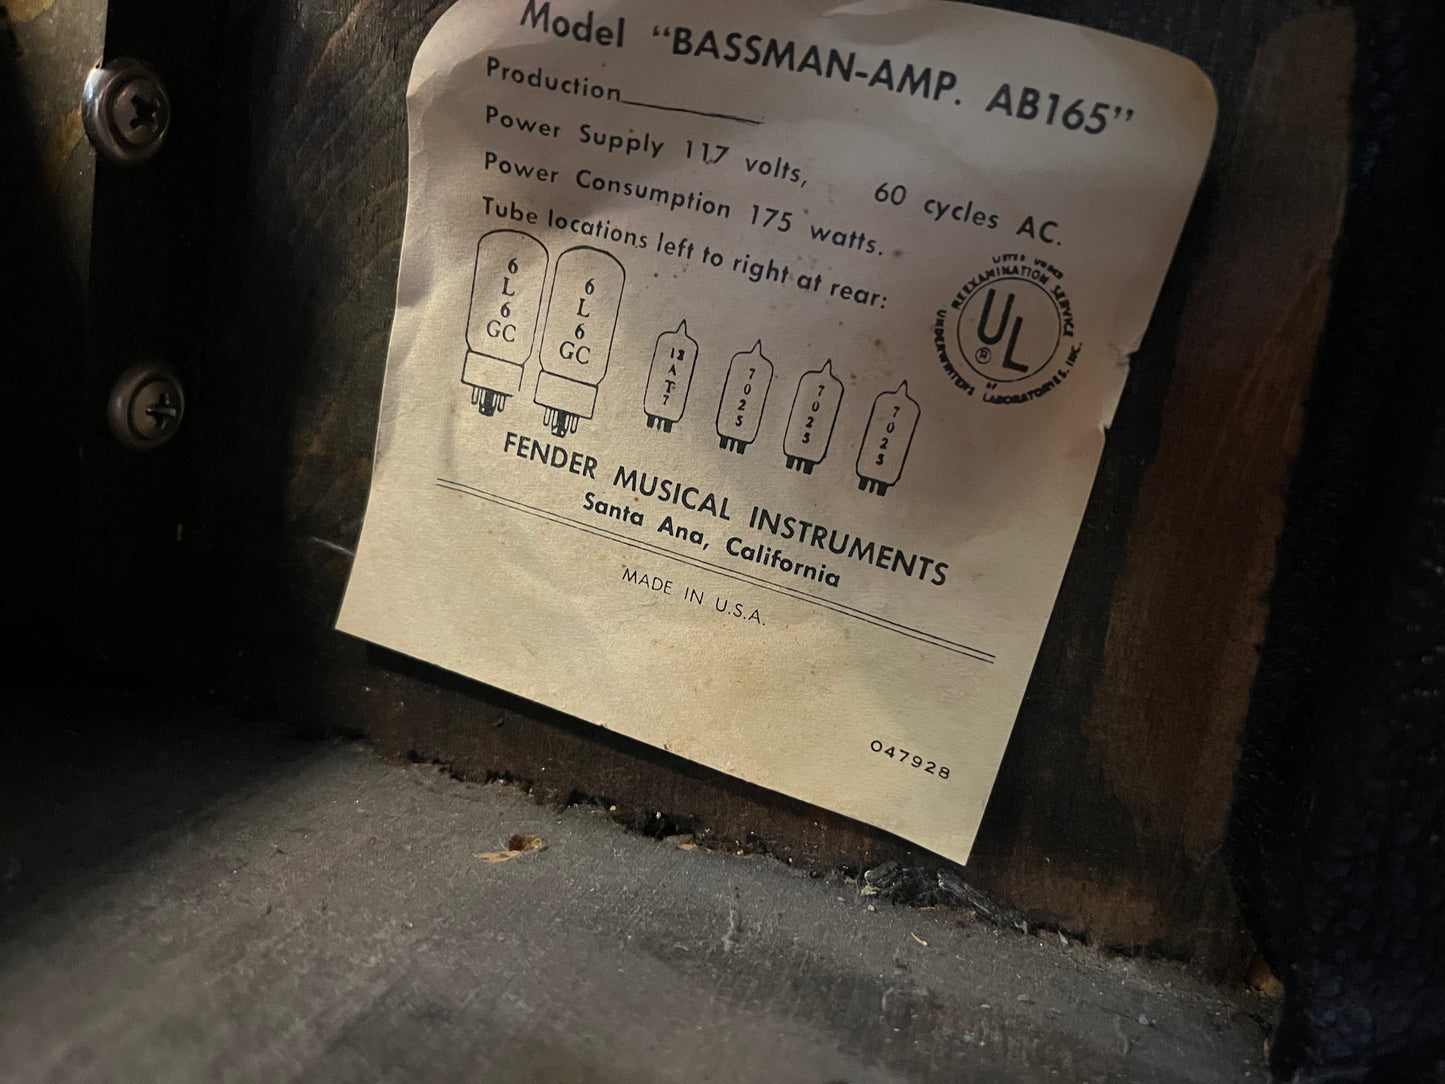 Model “BASSMAN-AMP. AB165”
Production
Power Supply 117 volts, 60 cycles AC.
Power Consumption 175 watts.
Tube locations left to right at rear:
6L6GC
6L6GC
12AT7
7025
7025
7025
LISTED UNDER
REEXAMINATION SERVICE
UL
®
OF
UNDERWRITERS LABORATORIES, INC.
FENDER MUSICAL INSTRUMENTS
Santa Ana, California
MADE IN U.S.A.
047928